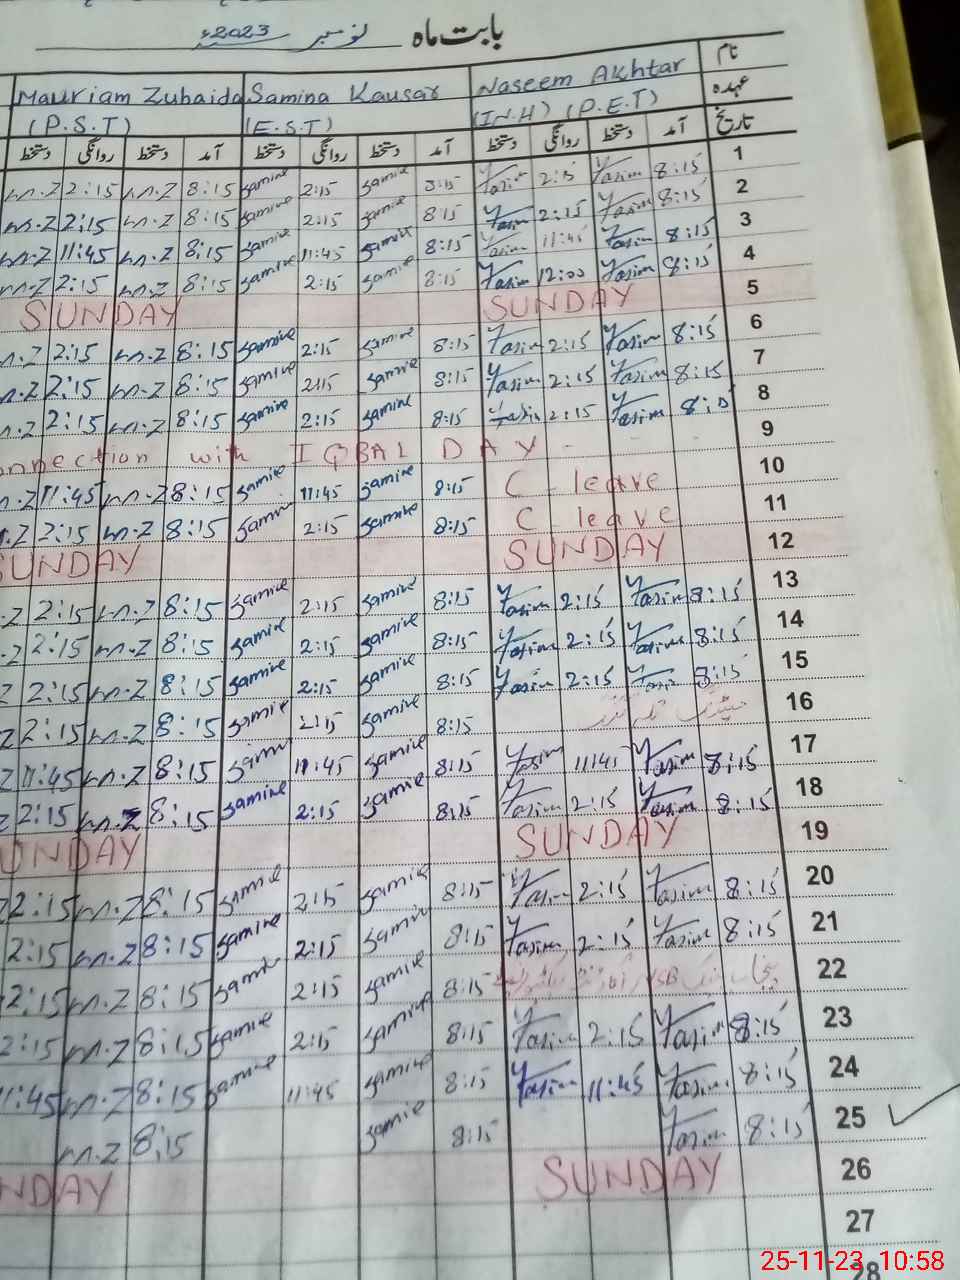 بابت ماہ نومبر 2023ء
Mauriam Zubaida Samina Kausar Naseem Akhtar نام
(P.S.T) (E.S.T) (IN.H) (P.E.T) عہدہ
دستخط روانگی دستخط آمد دستخط روانگی دستخط آمد دستخط روانگی دستخط آمد تاریخ
m.Z 2:15 m.Z 8:15 Samine 2:15 Samine 8:15 Yasim 2:15 Yasim 8:15 1
m.Z 2:15 m.Z 8:15 Samine 2:15 Samine 8:15 Yasim 2:15 Yasim 8:15 2
m.Z 11:45 m.Z 8:15 Samine 11:45 Samine 8:15 Yasim 11:45 Yasim 8:15 3
m.Z 2:15 m.Z 8:15 Samine 2:15 Samine 8:15 Yasim 12:00 Yasim 8:15 4
SUNDAY SUNDAY 5
m.Z 2:15 m.Z 8:15 Samine 2:15 Samine 8:15 Yasim 2:15 Yasim 8:15 6
m.Z 2:15 m.Z 8:15 Samine 2:15 Samine 8:15 Yasim 2:15 Yasim 8:15 7
m.Z 2:15 m.Z 8:15 Samine 2:15 Samine 8:15 Yasim 2:15 Yasim 8:15 8
nnection with IQBAL DAY 9
m.Z 11:45 m.Z 8:15 Samine 11:45 Samine 8:15 C leave 10
m.Z 2:15 m.Z 8:15 Samine 2:15 Samine 8:15 C leave 11
SUNDAY SUNDAY 12
.Z 2:15 m.Z 8:15 Samine 2:15 Samine 8:15 Yasim 2:15 Yasim 8:15 13
.Z 2:15 m.Z 8:15 Samine 2:15 Samine 8:15 Yasim 2:15 Yasim 8:15 14
Z 2:15 m.Z 8:15 Samine 2:15 Samine 8:15 Yasim 2:15 Yasim 8:15 15
Z 2:15 m.Z 8:15 Samine 2:15 Samine 8:15 16
Z 11:45 m.Z 8:15 Samine 11:45 Samine 8:15 Yasim 11:45 Yasim 8:15 17
Z 2:15 m.Z 8:15 Samine 2:15 Samine 8:15 Yasim 2:15 Yasim 8:15 18
UNDAY SUNDAY 19
Z 2:15 m.Z 8:15 Samine 2:15 Samine 8:15 Yasim 2:15 Yasim 8:15 20
2:15 m.Z 8:15 Samine 2:15 Samine 8:15 Yasim 2:15 Yasim 8:15 21
2:15 m.Z 8:15 Samine 2:15 Samine 8:15 22
2:15 m.Z 8:15 Samine 2:15 Samine 8:15 Yasim 2:15 Yasim 8:15 23
11:45 m.Z 8:15 Samine 11:45 Samine 8:15 Yasim 11:45 Yasim 8:15 24
m.Z 8:15 Samine 8:15 Yasim 8:15 25
NDAY SUNDAY 26
27
28
25-11-23 10:58